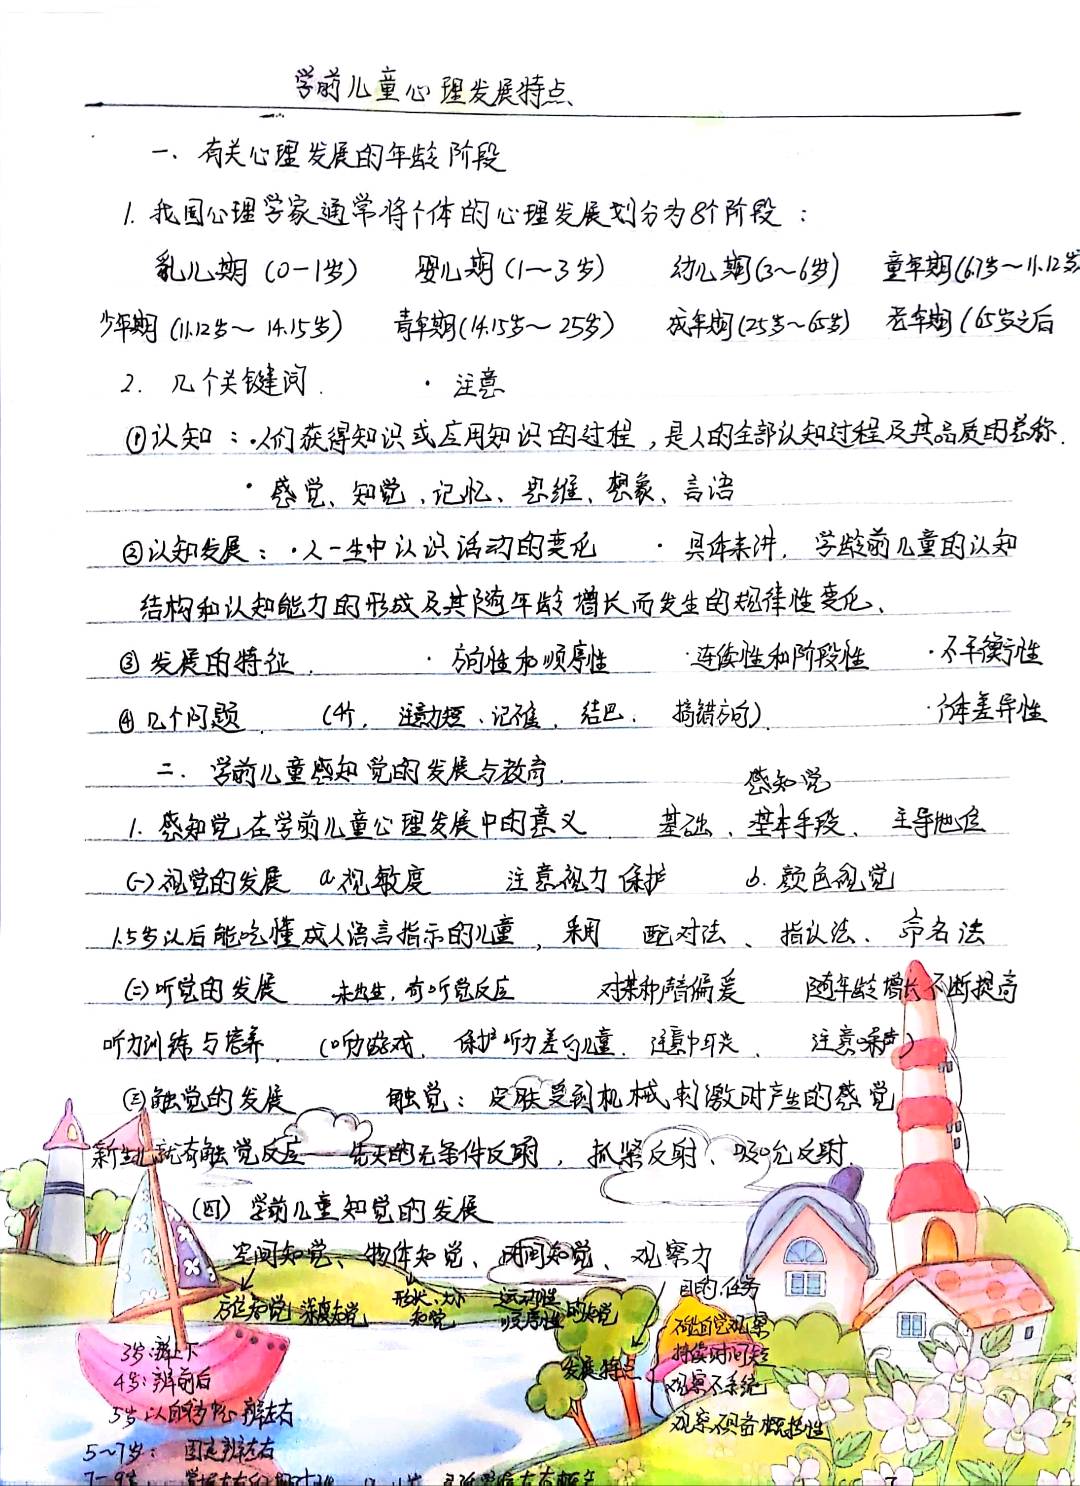 学前儿童心理发展特点
一、有关心理发展的年龄阶段
1. 我国心理学家通常将个体的心理发展划分为8个阶段：
乳儿期（0-1岁） 婴儿期（1～3岁） 幼儿期（3～6岁） 童年期（6.7岁～11.12岁
少年期（11.12岁～14.15岁） 青年期（14.15岁～25岁） 成年期（25岁～65岁） 老年期（65岁之后
2. 几个关键词. · 注意
①认知：·人们获得知识或应用知识的过程，是人的全部认知过程及其品质的总称.
· 感觉、知觉、记忆、思维、想象、言语
②认知发展：·人一生中认识活动的变化 · 具体来讲，学龄前儿童的认知
结构和认知能力的形成及其随年龄增长而发生的规律性变化、
③发展的特征. · 方向性和顺序性 ·连续性和阶段性 ·不平衡性
④几个问题. （4个，注意力短、记不准、结巴、搞错方向） ·个体差异性
二、学前儿童感知觉的发展与教育.
感知觉
1. 感知觉在学前儿童心理发展中的意义 基础、基本手段、主导地位
(一)视觉的发展 a.视敏度 注意视力保护 b. 颜色视觉
1.5岁以后能听懂成人语言指示的儿童，采用 配对法、指认法、命名法
(二)听觉的发展 未出生，有听觉反应 对某种声音偏爱 随年龄增长不断提高
听力训练与培养. （听力游戏，保护听力差的儿童. 注意中耳炎、 注意噪声）
(三)触觉的发展 触觉：皮肤受到机械刺激时产生的感觉
新生儿就有触觉反应——先天的无条件反射，抓紧反射、吸吮反射.
(四)学前儿童知觉的发展
空间知觉、物体知觉、时间知觉、观察力
方位知觉 深度知觉 形状、大小知觉 运动性 顺序性 的知觉
目的、任务
不能自觉观察
3岁:辨上下 发展特点 持续时间短
4岁:辨前后 观察不系统
5岁:以自身为中心辨左右 观察不具备概括性
5～7岁： 固定辨左右
7-9岁：